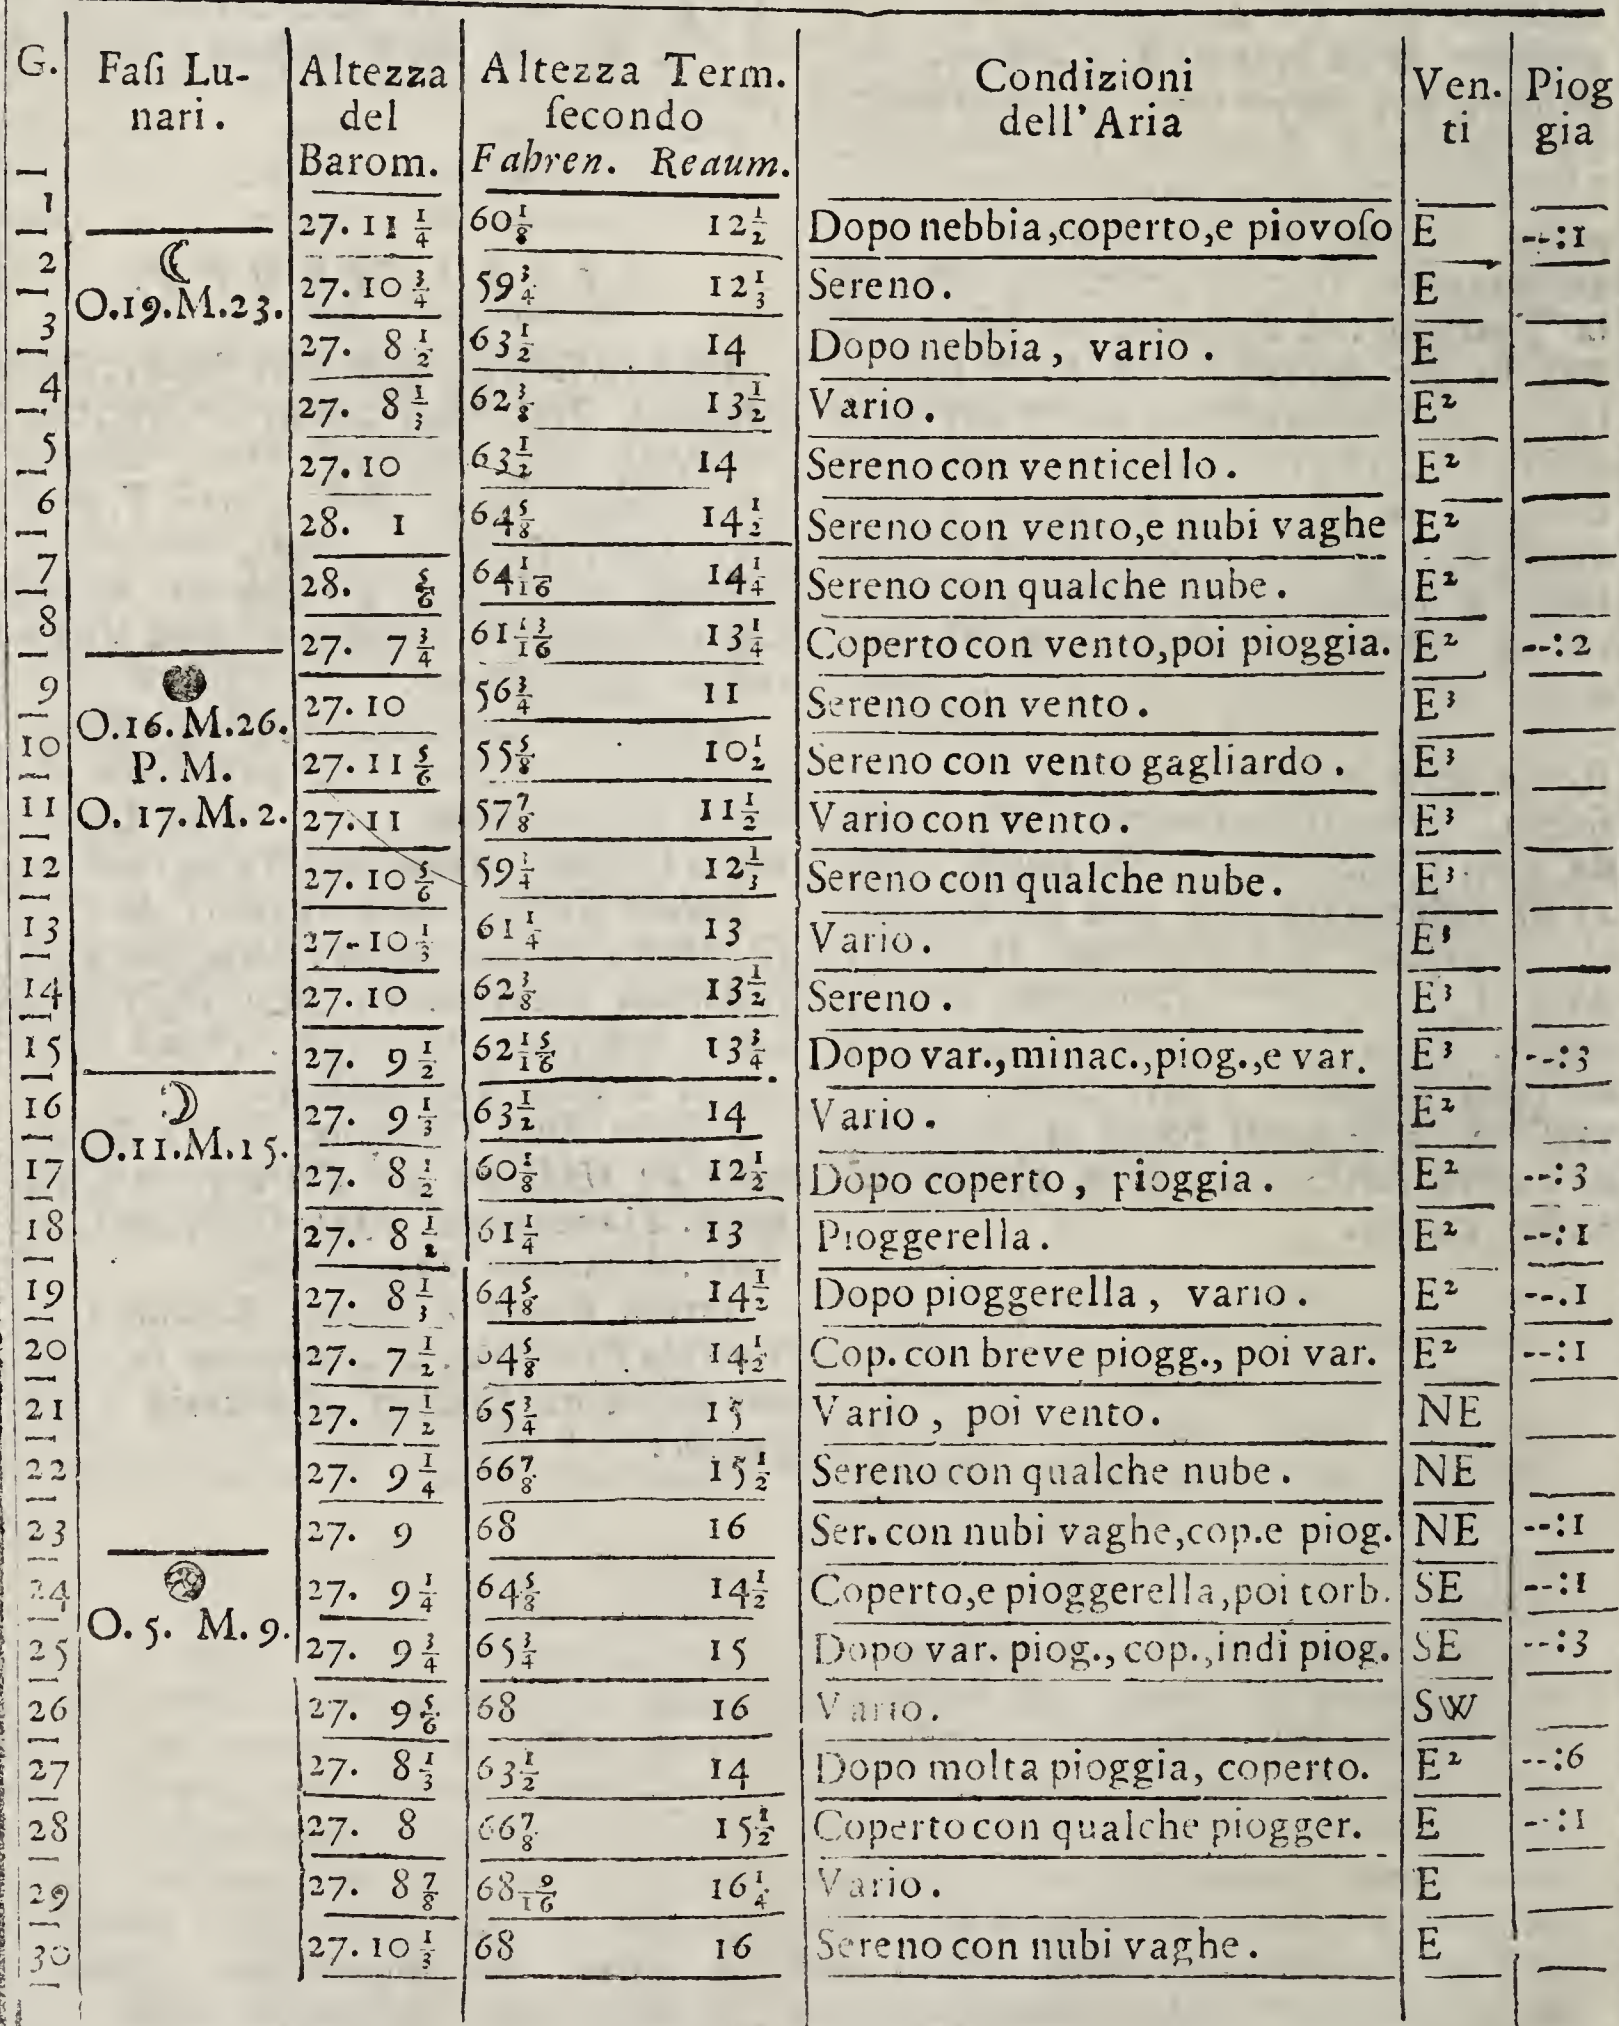 G. Faſi Lu- Altezza Altezza Term. Condizioni Ven. Piog
nari. del ſecondo dell'Aria ti gia
Barom. Fahren. Reaum.
1 27. 11 1/4 60 1/8 12 1/2 Dopo nebbia, coperto, e piovoſo E --:1
2 ☾ 27. 10 3/4 59 3/4 12 1/3 Sereno. E
O.19.M.23.
3 27. 8 1/2 63 1/2 14 Dopo nebbia, vario. E
4 27. 8 1/3 62 3/8 13 1/2 Vario. E²
5 27. 10 63 1/2 14 Sereno con venticello. E²
6 28. 1 64 5/8 14 1/2 Sereno con vento, e nubi vaghe E²
7 28. 5/6 64 1/16 14 1/4 Sereno con qualche nube. E²
8 27. 7 3/4 61 13/16 13 1/4 Coperto con vento, poi pioggia. E² --:2
9 27. 10 56 3/4 11 Sereno con vento. E³
O.16.M.26.
10 27. 11 5/6 55 5/8 10 1/2 Sereno con vento gagliardo. E³
P. M.
11 O. 17. M. 2. 27. 11 57 7/8 11 1/2 Vario con vento. E³
12 27. 10 5/6 59 3/4 12 1/3 Sereno con qualche nube. E³
13 27-10 1/3 61 1/4 13 Vario. E³
14 27. 10 62 3/8 13 1/2 Sereno. E³
15 27. 9 1/2 62 15/16 13 3/4 Dopo var., minac., piog., e var. E³ --:3
16 ☽ 27. 9 1/3 63 1/2 14 Vario. E²
O.11.M.15.
17 27. 8 1/2 60 1/8 12 1/2 Dopo coperto, pioggia. E² --:3
18 27. 8 1/2 61 1/4 13 Pioggerella. E² --:1
19 27. 8 1/3 64 5/8 14 1/2 Dopo pioggerella, vario. E² --.1
20 27. 7 1/2 64 5/8 14 1/2 Cop. con breve piogg., poi var. E² --:1
21 27. 7 1/2 65 3/4 15 Vario, poi vento. NE
22 27. 9 1/4 66 7/8 15 1/2 Sereno con qualche nube. NE
23 27. 9 68 16 Ser. con nubi vaghe, cop. e piog. NE --:1
24 27. 9 1/4 64 5/8 14 1/2 Coperto, e pioggerella, poi torb. SE --:1
O. 5. M. 9.
25 27. 9 3/4 65 3/4 15 Dopo var. piog., cop., indi piog. SE --:3
26 27. 9 5/6 68 16 Vario. SW
27 27. 8 1/3 63 1/2 14 Dopo molta pioggia, coperto. E² --:6
28 27. 8 66 7/8 15 1/2 Coperto con qualche piogger. E --:1
29 27. 8 7/8 68 9/16 16 1/4 Vario. E
30 27. 10 1/3 68 16 Sereno con nubi vaghe. E